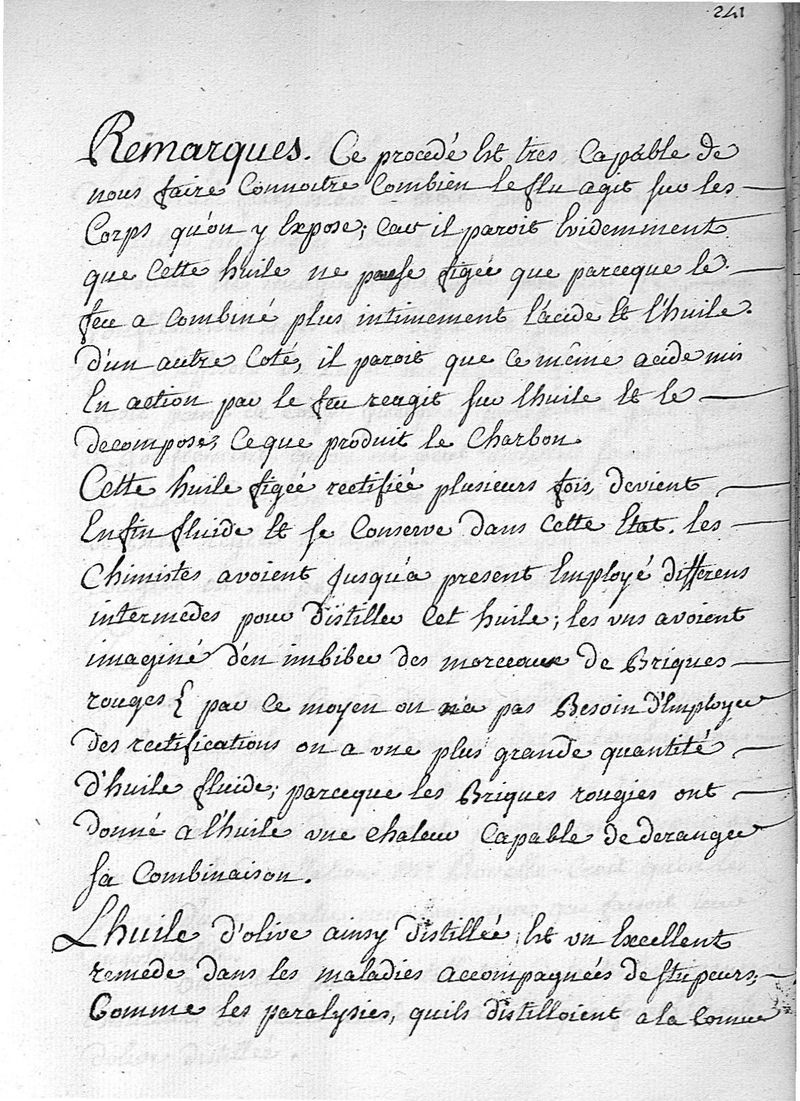 241
Remarques. Ce procedé Est tres Capable de
nous faire Connoitre Combien le flu agit sur les
Corps qu'on y Expose; Car il paroit Evidemment
que Cette huile ne se figée que parceque le
feu a Combiné plus intimement l'acide Et l'huile.
D'un autre Coté, il paroit que Ce même acide mis
En action par le feu reagit sur l'huile Et le
decompose; Ce que produit le Charbon.
Cette huile figée rectifiée plusieurs fois, devient
Enfin fluide Et se Conserve dans Cette Etat. les
Chimistes avoient jusqu'a present Employé differens
intermedes pour distiller Cet huile; les vns avoient
imaginé d'en imbiber des morceaux de Briques
rouges { par Ce moyen on n'a pas Besoin d'Employer
des rectifications on a vne plus grande quantité
d'huile fluide; parceque les Briques rougies ont
donné a l'huile vne chaleur Capable de deranger
sa Combinaison.
L'huile d'olive ainsy distillée, Est vn Excellent
remede dans les maladies accompagnées de stupeurs,
Comme les paralysies, quils distilloient a la Cornue